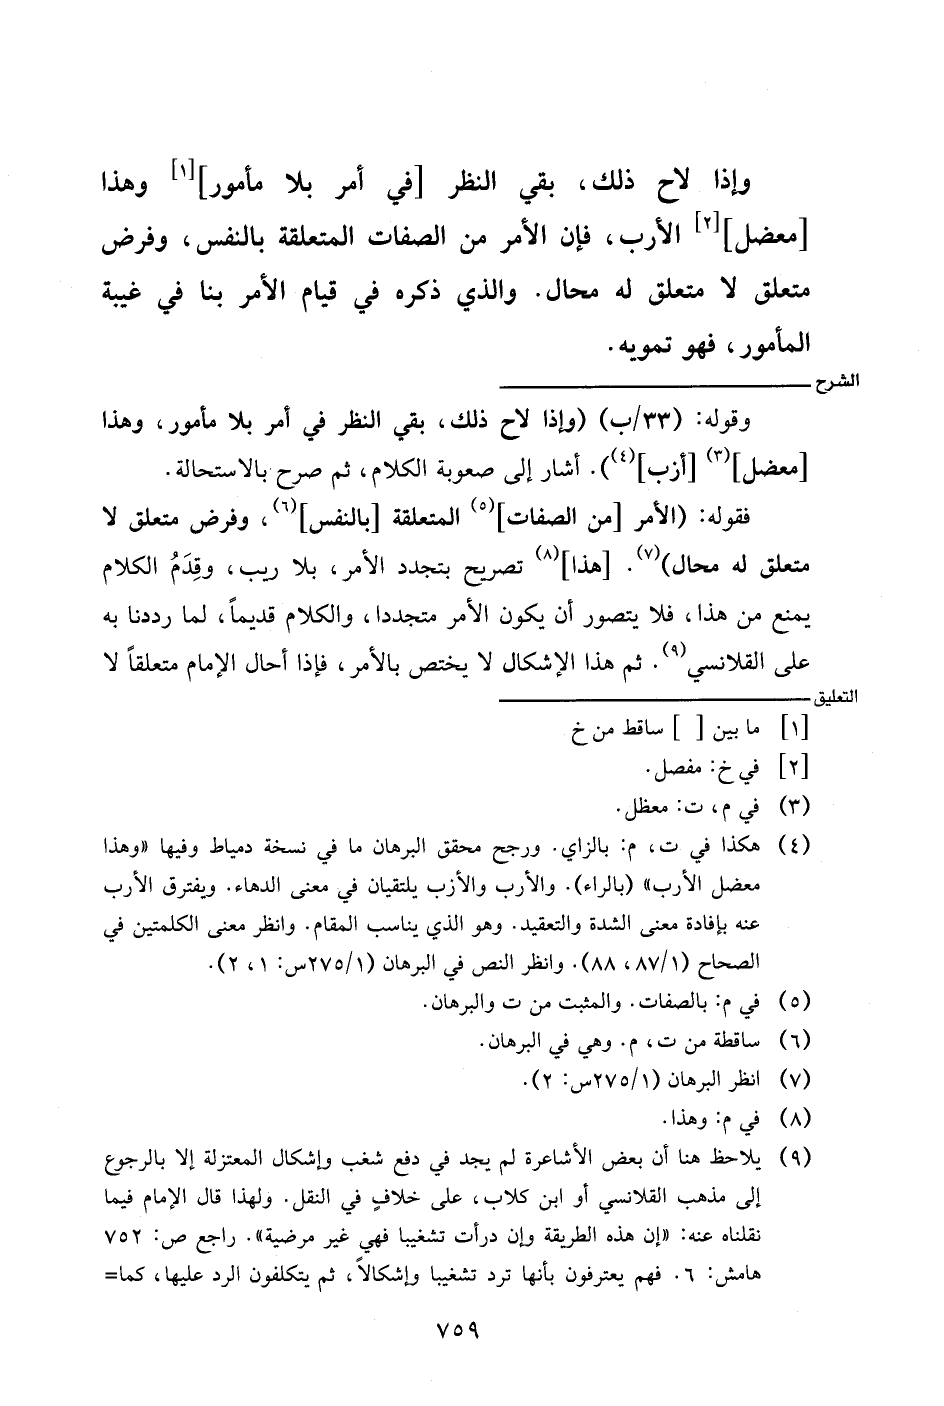 وإذا لاح ذلك، بقي النظر [في أمر بلا مأمور][١] وهذا
[معضل][٢] الأرب، فإن الأمر من الصفات المتعلقة بالنفس، وفرض
متعلق لا متعلق له محال. والذي ذكره في قيام الأمر بنا في غيبة
المأمور، فهو تمويه.
الشرح
وقوله: (٣٣/ب) (وإذا لاح ذلك، بقي النظر في أمر بلا مأمور، وهذا
[معضل](٣) [أزب](٤)). أشار إلى صعوبة الكلام، ثم صرح بالاستحالة.
فقوله: (الأمر [من الصفات](٥) المتعلقة [بالنفس](٦)، وفرض متعلق لا
متعلق له محال)(٧). [هذا](٨) تصريح بتجدد الأمر، بلا ريب، وقِدَمُ الكلام
يمنع من هذا، فلا يتصور أن يكون الأمر متجددا، والكلام قديماً، لما رددنا به
على القلانسي(٩). ثم هذا الإشكال لا يختص بالأمر، فإذا أحال الإمام متعلقاً لا
التعليق
[١] ما بين [ ] ساقط من خ
[٢] في خ: مفصل.
(٣) في م، ت: معظل.
(٤) هكذا في ت، م: بالزاي. ورجح محقق البرهان ما في نسخة دمياط وفيها «وهذا
معضل الأرب» (بالراء). والأرب والأزب يلتقيان في معنى الدهاء. ويفترق الأرب
عنه بإفادة معنى الشدة والتعقيد. وهو الذي يناسب المقام. وانظر معنى الكلمتين في
الصحاح (٨٧/١، ٨٨). وانظر النص في البرهان (٢٧٥/١س: ١، ٢).
(٥) في م: بالصفات. والمثبت من ت والبرهان.
(٦) ساقطة من ت، م. وهي في البرهان.
(٧) انظر البرهان (٢٧٥/١س: ٢).
(٨) في م: وهذا.
(٩) يلاحظ هنا أن بعض الأشاعرة لم يجد في دفع شغب وإشكال المعتزلة إلا بالرجوع
إلى مذهب القلانسي أو ابن كلاب، على خلافٍ في النقل. ولهذا قال الإمام فيما
نقلناه عنه: «إن هذه الطريقة وإن درأت تشغيبا فهي غير مرضية». راجع ص: ٧٥٢
هامش: ٦. فهم يعترفون بأنها ترد تشغيبا وإشكالاً، ثم يتكلفون الرد عليها، كما=
٧٥٩